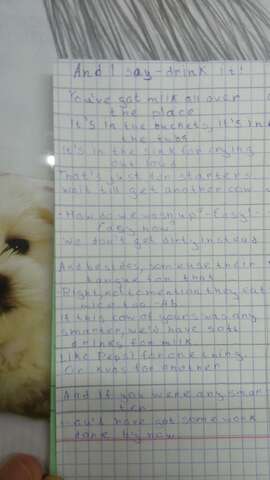 And I say-drink it!
You've got milk all over
the place
It's in the buckets, it's in
the tubs
It's in the for crying
out loud
That's just for starters
wait till get another cow
-How do we wash up? -Easy!-
Easy, now
We don't get dirty instead
And besides, some use their
tongue for that
Right, not to mention they eat
If this cow of yours was any
smarter, we'd have soft
drinks for milk
Like Pepsi for one thing.
Or kvas for another
And if you were any smar
ter
You'd have got some work
done by now